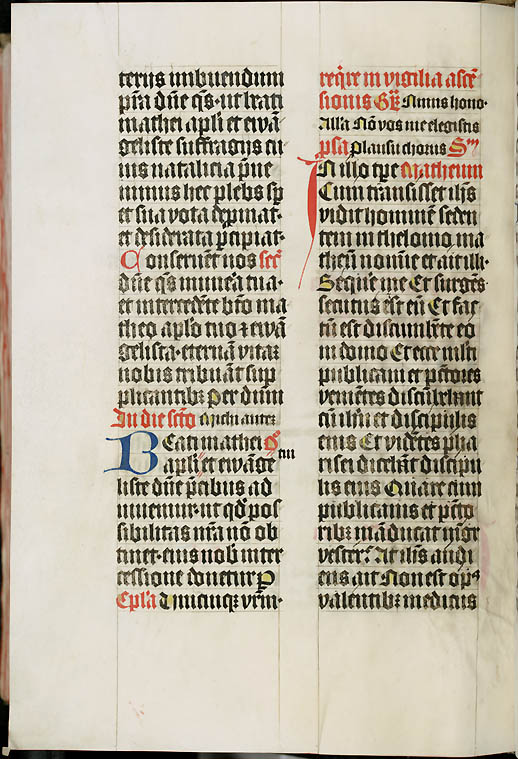 terijs imbuendum
pr̄a dn̄e qs̄· ut beati
mathei apl̄i et ewā
geliste suffragijs eī
us natalicia p̄ue
nimus hec plebs sp̄
et sua vota depmat·
et desiderata p̄cipiat·
Conseruēt nos sec̄
dn̄e qs̄ munēa tua·
et intercedēte bt̄o ma
theo aplo tuo ⁊ ewā
gelista· eternā vitaʒ
nobis tribuāt sup
plicantibʒ per dnm
In die sc̄to Michi autē
Beati mathei or̄
apl̄i et ewāge tui
liste dn̄e p̄cibus ad
iuuemur· ut qd̄ pos
sibilitas nr̄a nō ob
tinet· eius nob̄ inter
cessione donetur ꝑ
Epl̄a Vnicuiqʒ vr̄m·
reqr̄e in vigilia ascē
sionis Gr̄ Nimis hono·
Alla Nō vos me elegistis
psa plausu chorus Sm
In illo tp̄e Matheum
Cum transisset ih̄s
vidit hominē seden
tem in theloneo ma
theū nomīe et ait illi·
Seqr̄e me Et surgēs·
secutus est eū Et fac
tū est discumbēte eo
in domo Et ecce mlti
publicani et pc̄tores
veniētes discūbebant
cū ih̄u et discipulis
eius Et vidētes pha
risei dicebāt discipu
lis eius Quare cum
publicanis et pc̄to
ribʒ māducat mgr̄
vester? At ih̄s audi
ens ait Non est opꝰ
valentibʒ medicus